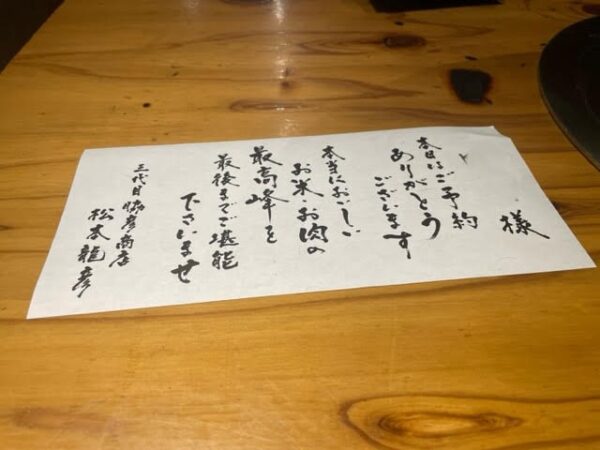 様
本日はご予約
ありがとう
ございます
本当においしい
お米・お肉の
最高峰を
最後までご堪能
下さいませ
三代目脇彦商店
松本龍彦